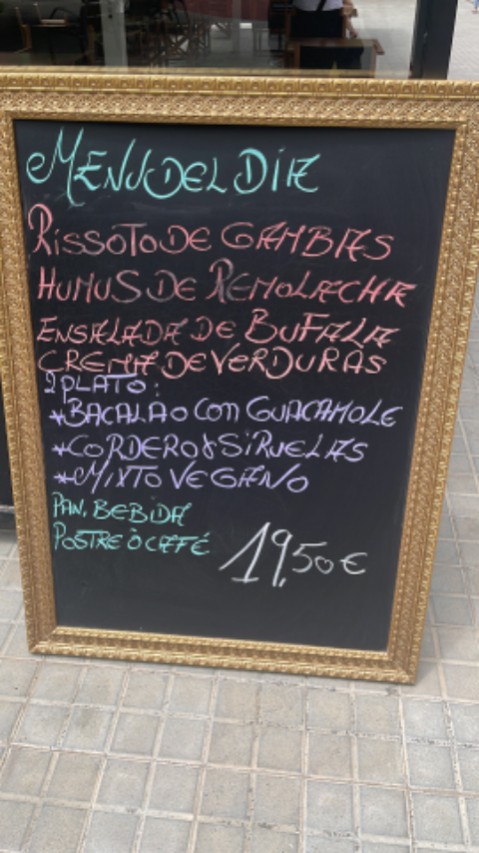 MENU DEL DIA
RISSOTO DE GAMBAS
HUMUS DE REMOLACHA
ENSALADA DE BUFALA
CREMA DE VERDURAS
2 PLATO:
*BACALAO CON GUACAMOLE
*CORDERO & SIRUELAS
*MIXTO VEGANO
PAN, BEBIDA
POSTRE Ò CAFFÉ
19,50€